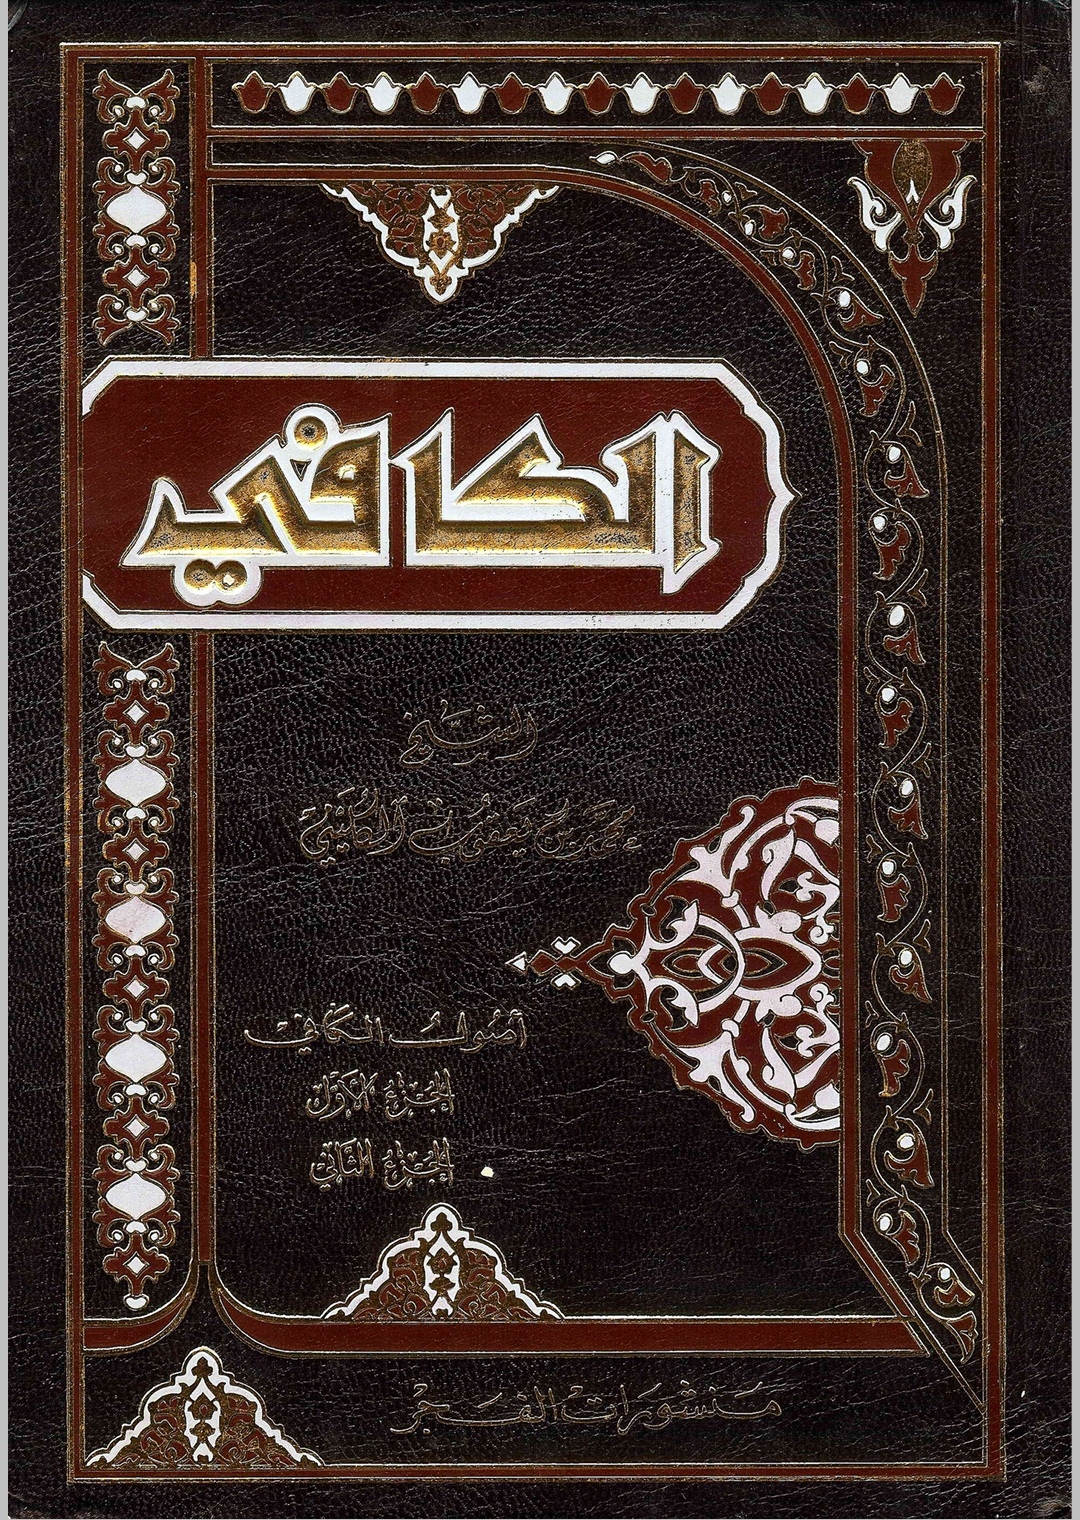 الكافي
الشيخ
محمد بن يعقوب الكليني
أصول الكافي
الجزء الأول
الجزء الثاني
منشورات الفجر